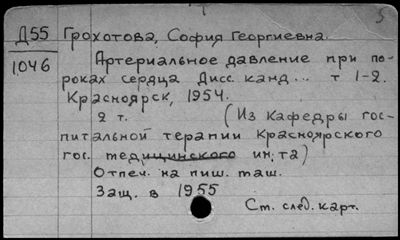 Д55 Грохотова, София Георгиевна.
1046 Артериальное давление при по-
роках сердца Дисс. канд... т 1-2.
Красноярск, 1954.
2 т. (Из кафедры гос-
питальной терапии Красноярского
гос. медицинского ин-та)
Отпеч. на пиш. маш.
Защ. в 1955
Ст. след. карт.